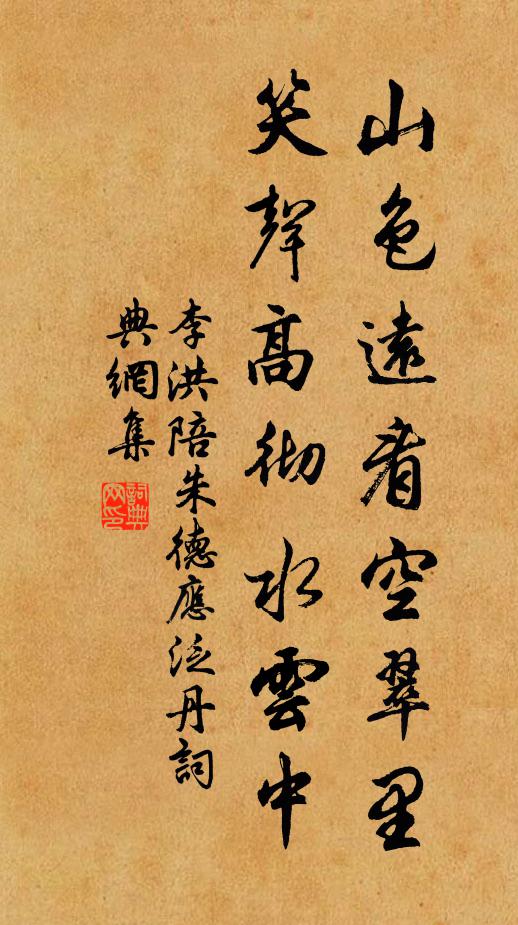 山色遠看空翠里
笑聲高彻水雲中
李洪陪朱德應泛丹詞
典網集
詞典
网印